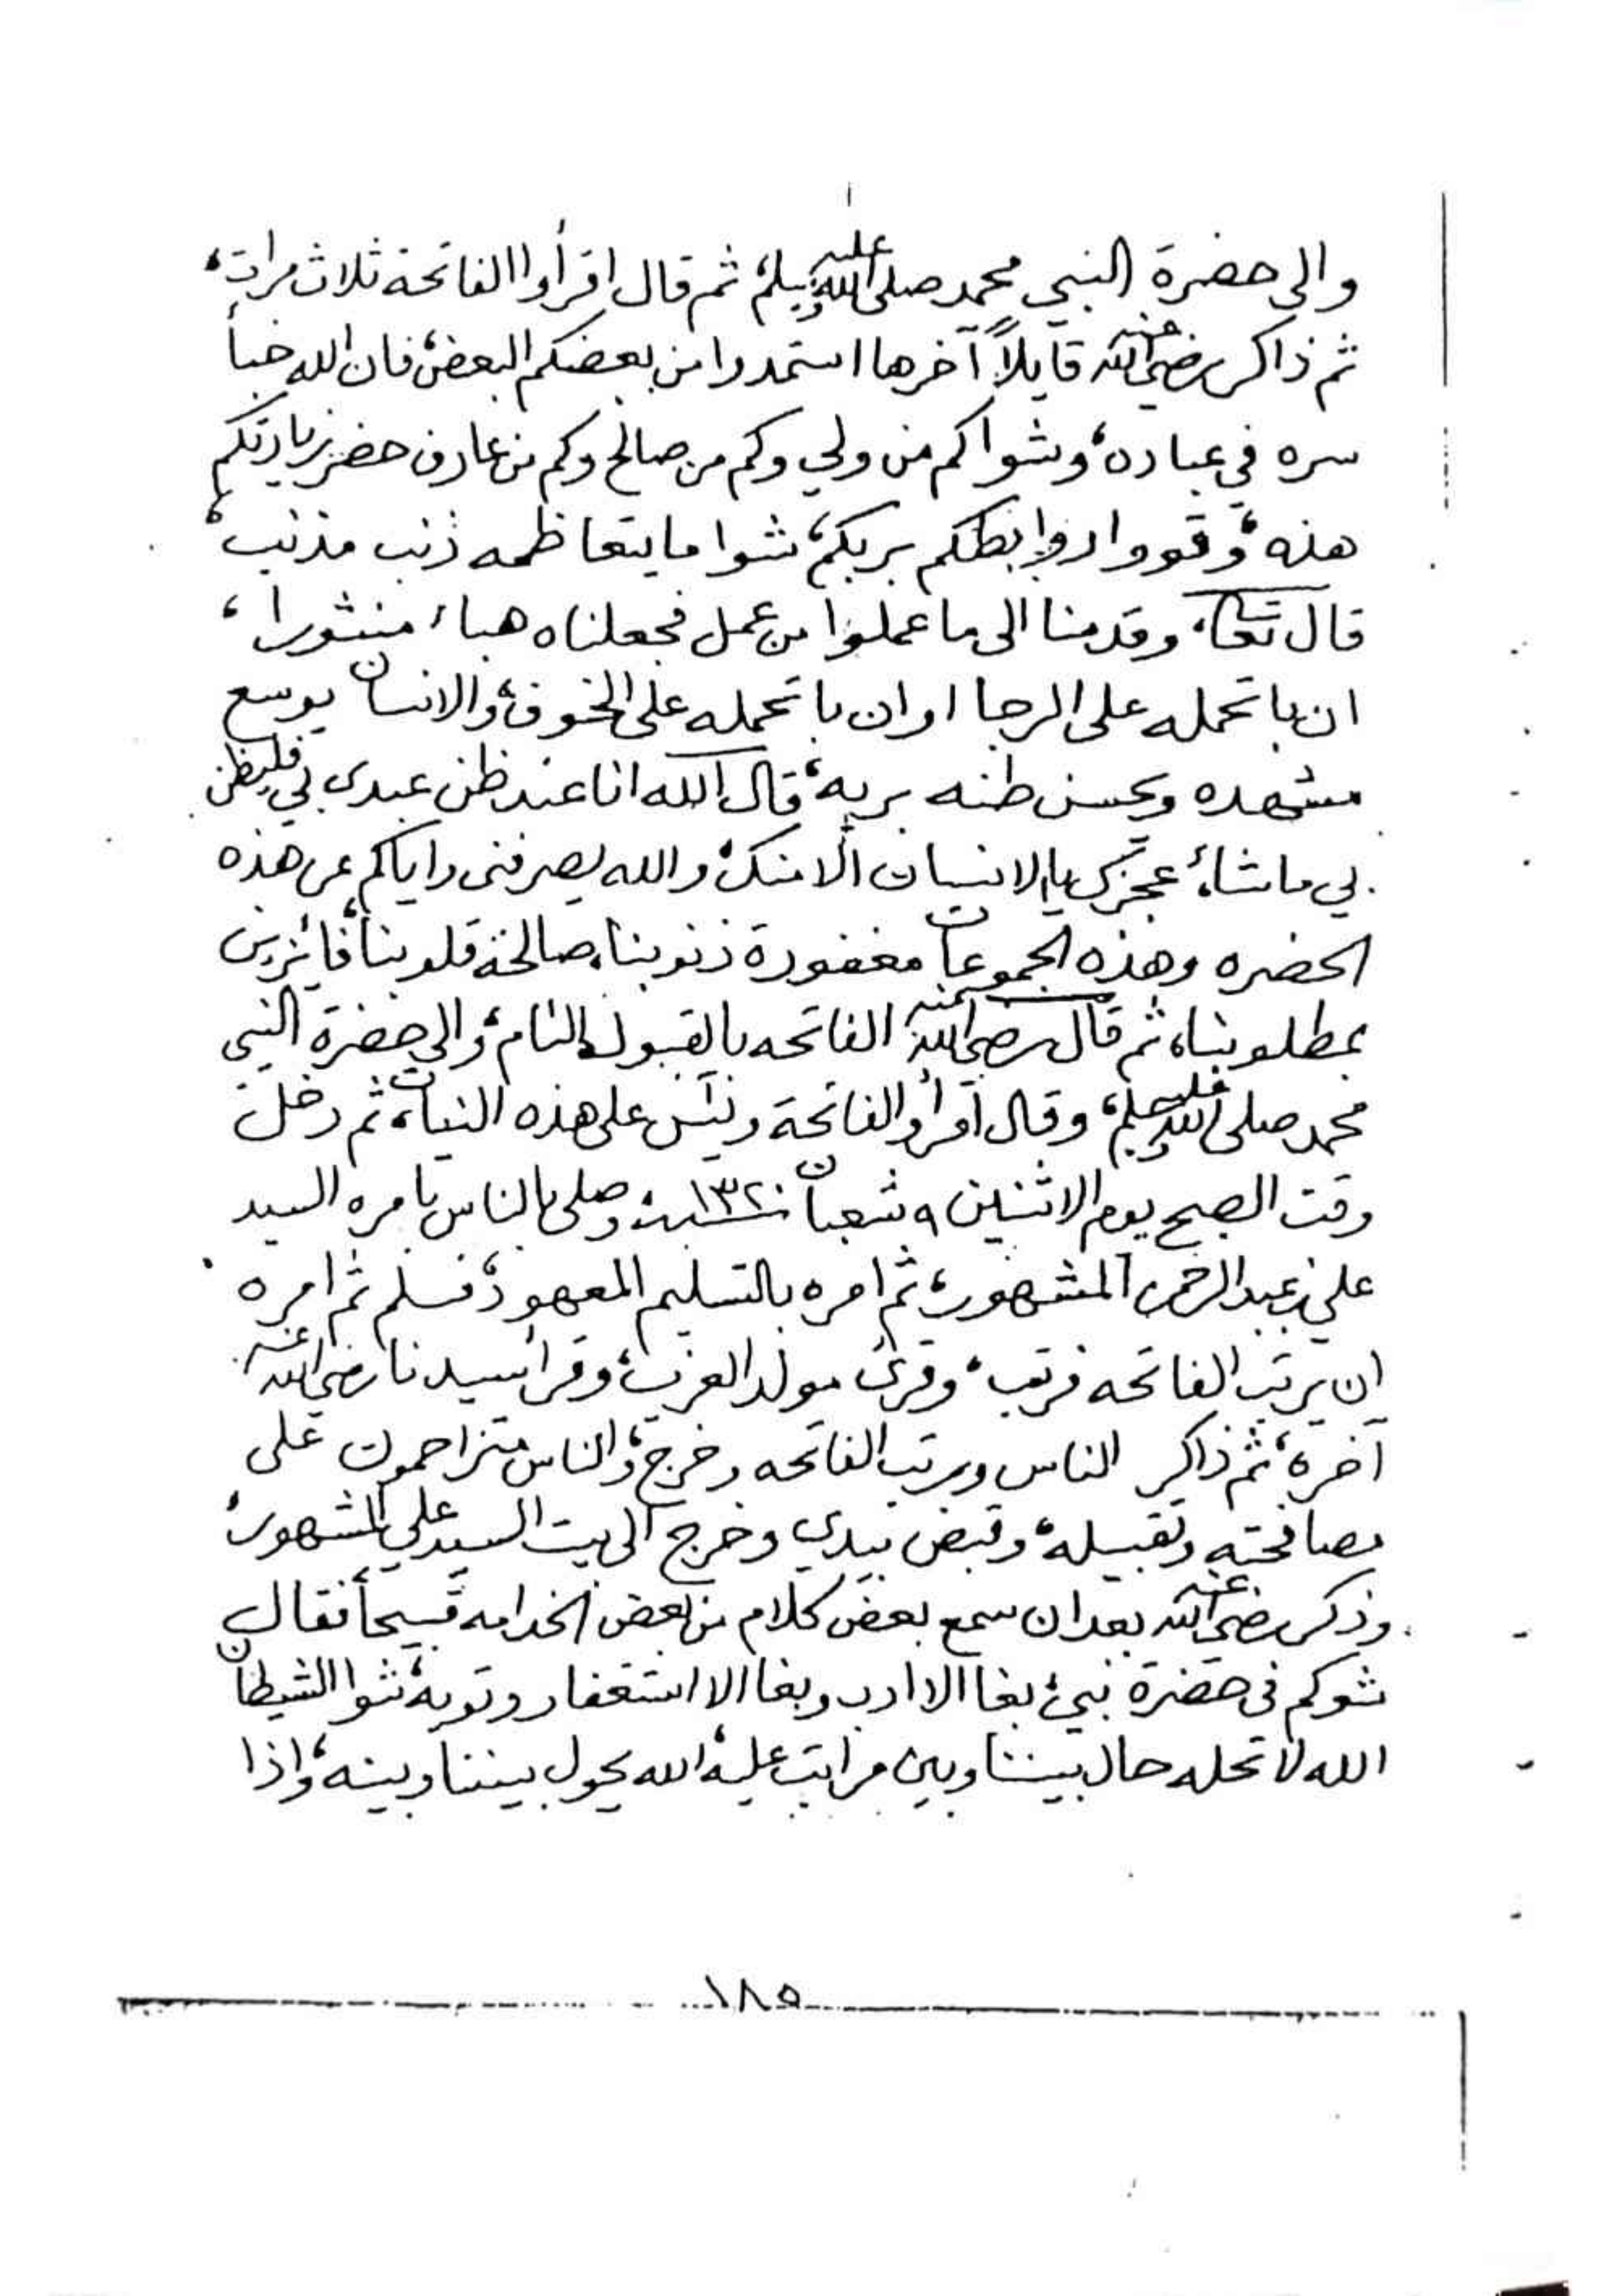 والى حضرة النبي محمد صلى الله عليه وسلم، ثم قال اقرأوا الفاتحة ثلاث مرات،
ثم ذاكر رضي الله عنه قايلاً آخرها استمدوا من بعضكم البعض، فان الله خبأ
سره في عباده، وشوا كم من ولي وكم من صالح وكم من عارف حضر زيارتكم
هذه، وقووا روابطكم بربكم، شوا ما يتعاظمه ذنب مذنب،
قال تعالى، وقدمنا الى ما عملوا من عمل فجعلناه هباء منثورا،
ان با تحمله على الرجا او ان با تحمله على الخوف، والانسان يوسع
مشهده ويحسن ظنه بربه، قال الله انا عند ظن عبدي بي فليظن
بي ما شاء، عجزك يا الانسان الا منك، والله يصرفنى واياكم عن هذه
الحضره وهذه الجموعات مغفورة ذنوبنا، صالحة قلوبنا، فائزين
بمطلوبنا، ثم قال رضي الله عنه الفاتحه بالقبول التام، والى حضرة النبي
محمد صلى الله عليه وسلم، وقال اقرأوا الفاتحة ويس على هذه النيات، ثم دخل
وقت الصبح يوم الاثنين ٩ شعبان سنة ١٣٢٠، وصلى بالناس بامره السيد
علي بن عبد الرحمن المشهور، ثم امره بالتسليم المعهود، فسلم ثم امره
ان يرتب الفاتحه فرتب، وقرئ مولد العزب، وقرأ سيدنا رضي الله عنه
آخره، ثم ذاكر الناس ورتب الفاتحه وخرج، والناس متزاحمون على
مصافحته وتقبيله، وقبض بيدي وخرج الى بيت السيد علي المشهور،
وذكر رضي الله عنه بعد ان سمع بعض كلام من بعض الخدامه قبيحاً فقال
شوكم فى حضرة نبي، بغا الا ادب وبغا الا استغفار وتوبه، شوا الشيطان
الله لا تحله حال بيننا وبين مراتب عليه، الله يحول بيننا وبينه، واذا
١٨٥